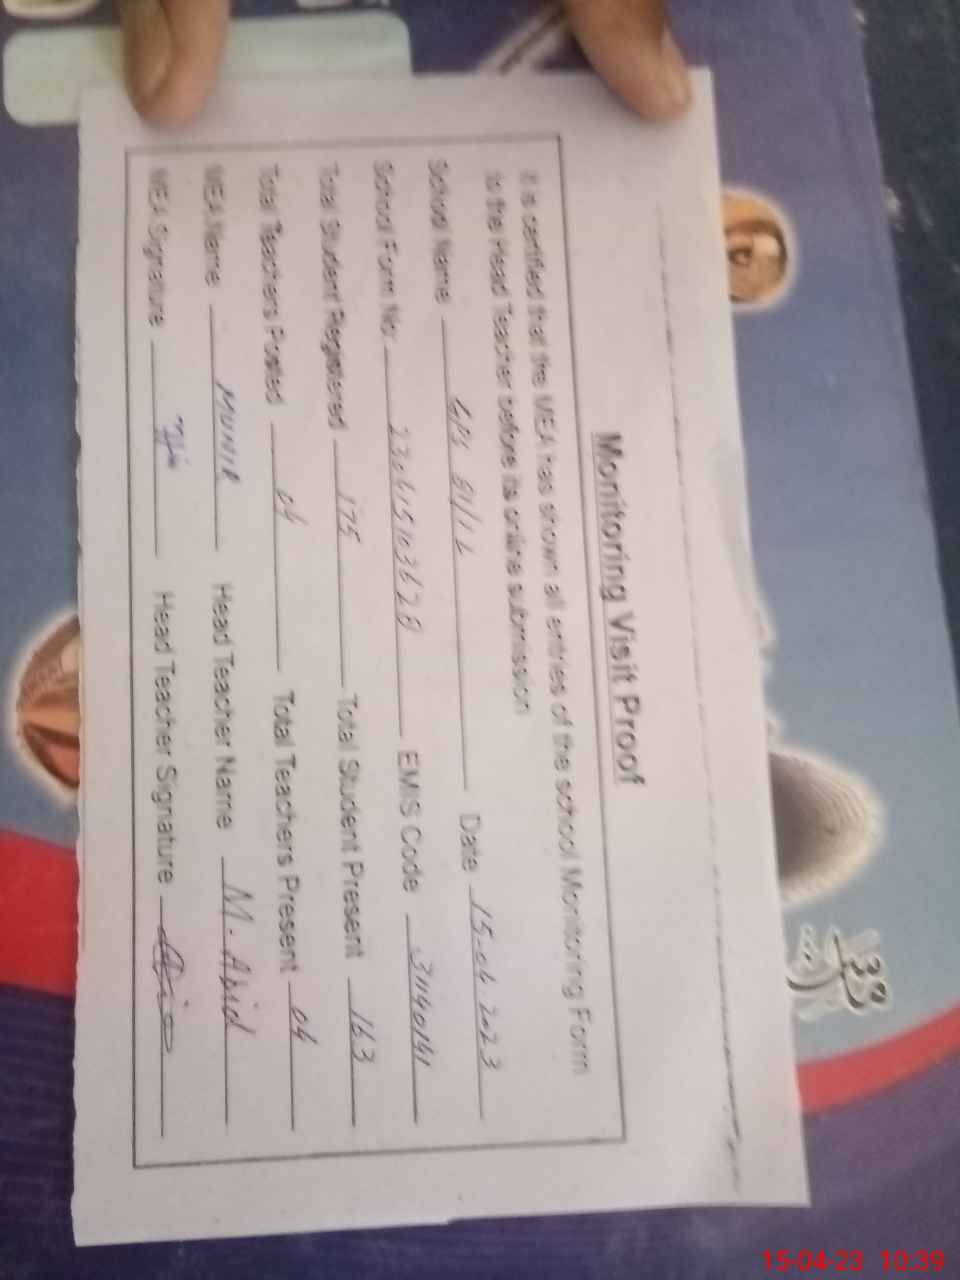 Monitoring Visit Proof
It is certified that the MEA has shown all entries of the school Monitoring Form
to the Head Teacher before its online submission
School Name Date 15-04-2023
School Form No: EMIS Code 31140141
Total Student Registered 175 Total Student Present 163
Total Teachers Posted 04 Total Teachers Present 04
MEA Name MUNIR Head Teacher Name M. Abid
MEA Signature Head Teacher Signature
15-04-23 10:39